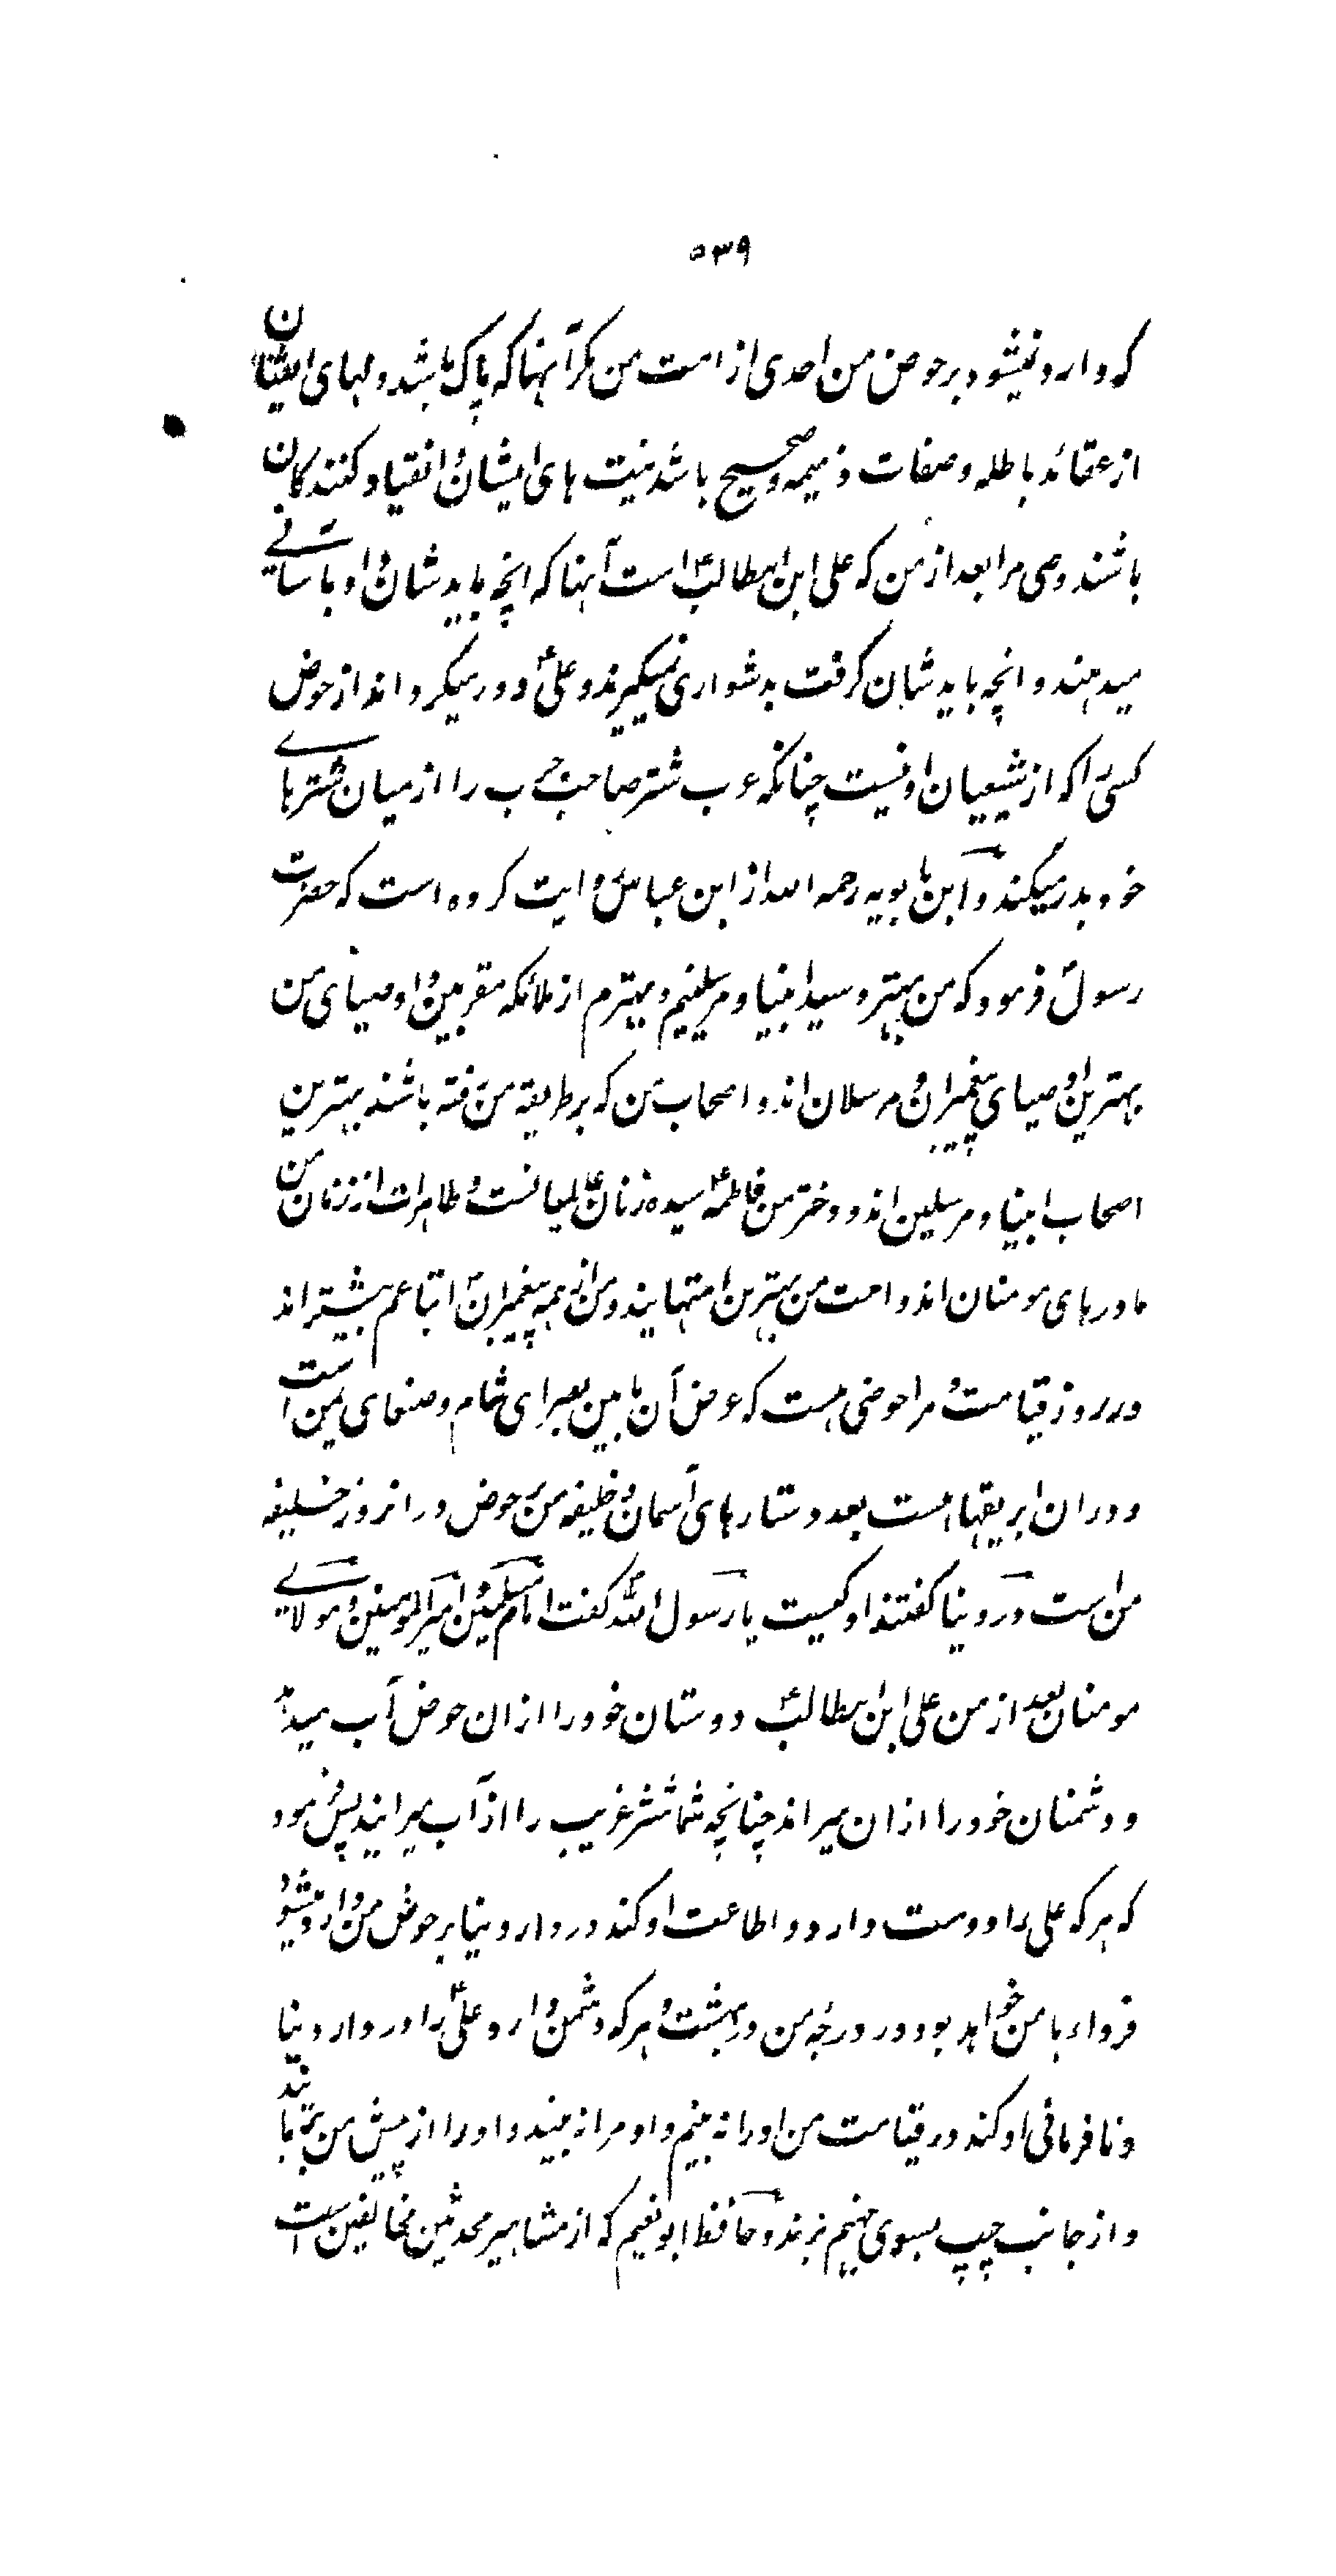 ۵۳۹
که وارد نمیشود بر حوض من احدی از امت من مگر آنها که پاک باشد دلهای ایشان
از عقائد باطله و صفات ذمیمه و صحیح باشد نیت های ایشان و انقیاد کنندگان
باشند وصی مرا بعد از من که علی ابن ابیطالبؑ است آنها که انچه باید شان داد باسانی
میدهند و انچه باید شان گرفت بدشواری نمیگیرند و علیؑ دور میگرداند از حوض
کسی را که از شیعیان او نیست چنانکه عرب شتر صاحب جرب را از میان شترهای
خود بدر میکند و ابن بابویه رحمه الله از ابن عباس روایت کرده است که حضرت
رسولؐ فرمود که من بهتر و سید انبیا و مرسلینم و بهترم از ملائکه مقربین و اوصیای من
بهترین اوصیای پیغمبران و مرسلان اند و اصحاب من که بر طریقه من رفته باشند بهترین
اصحاب انبیا و مرسلین اند و دختر من فاطمهؑ سیده زنان عالمیانست و طاهرات از زنان من
مادرهای مومنان اند و امت من بهترین امتهایند و من از همه پیغمبران اتباعم بیشتر اند
در روز قیامت و مرا حوضی هست که عرض آن مابین بصرای شام و صنعای یمن است
و دران ابریقها هست بعدد ستارهای آسمان و خلیفه من بر حوض در انروز خلیفه
من است در دنیا گفتند او کیست یا رسول الله گفت امام مسلمین و امیرالمومنین و مولای
مومنان بعد از من علی ابن ابیطالبؑ دوستان خود را ازان حوض آب میدهد
و دشمنان خود را ازان میراند چنانچه شما شتر غریب را از آب میرانید پس فرمود
که هر که علی را دوست دارد و اطاعت او کند در دار دنیا بر حوض من وارد میشود
فرداء با من خواهد بود در درجه من در بهشت و هر که دشمن دارد علیؑ را در دار دنیا
و نافرمانی او کند در قیامت من او را نه بینم و او مرا نه بیند و او را از پیش من بربایند
و از جانب چپ بسوی جهنم برند و حافظ ابونعیم که از مشاهیر محدثین مخالفین است